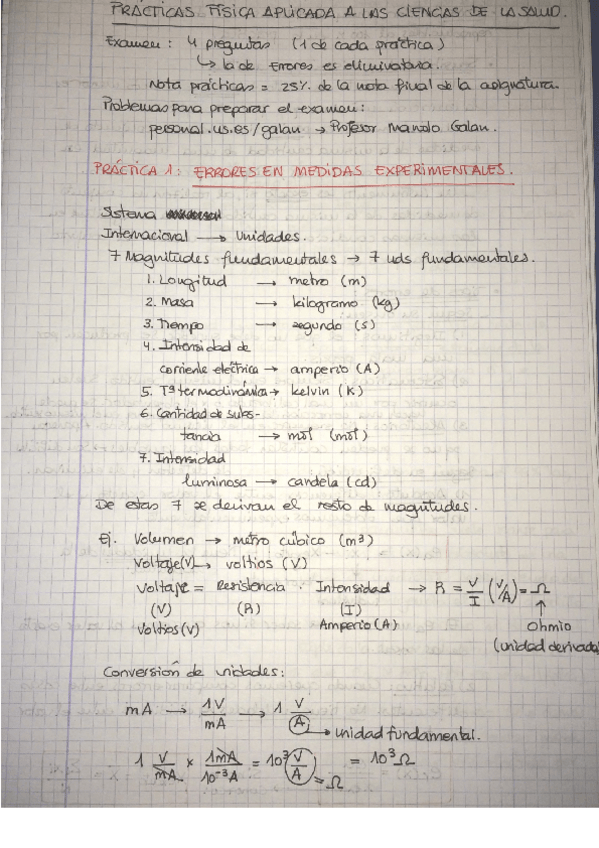 PRÁCTICAS FÍSICA APLICADA A LAS CIENCIAS DE LA SALUD.
Examen: 4 preguntas (1 de cada práctica)
↳ la de Errores es eliminatoria.
Nota prácticas = 25% de la nota final de la asignatura.
Problemas para preparar el examen:
personal.us.es/galan → Profesor Manolo Galan.
PRÁCTICA 1: ERRORES EN MEDIDAS EXPERIMENTALES.
Sistema
Internacional → Unidades.
7 Magnitudes fundamentales → 7 uds fundamentales.
1. Longitud → metro (m)
2. Masa → kilogramo (kg)
3. Tiempo → segundo (s)
4. Intensidad de
corriente eléctrica → amperio (A)
5. Tª termodinámica → kelvin (K)
6. Cantidad de subs-
tancia → mol (mol)
7. Intensidad
luminosa → candela (cd)
De estas 7 se derivan el resto de magnitudes.
Ej. Volumen → metro cúbico (m³)
Voltaje(V) → voltios (V)
Voltaje = Resistencia · Intensidad → R = V/I (V/A) = Ω
(V) (R) (I) ↑
Voltios (V) Amperio (A) Ohmio
(unidad derivada)
Conversión de unidades:
mA → 1V/mA → 1 V/A → unidad fundamental.
1 V/mA × 1mA/10⁻³A = 10³ V/A = 10³ Ω
= Ω